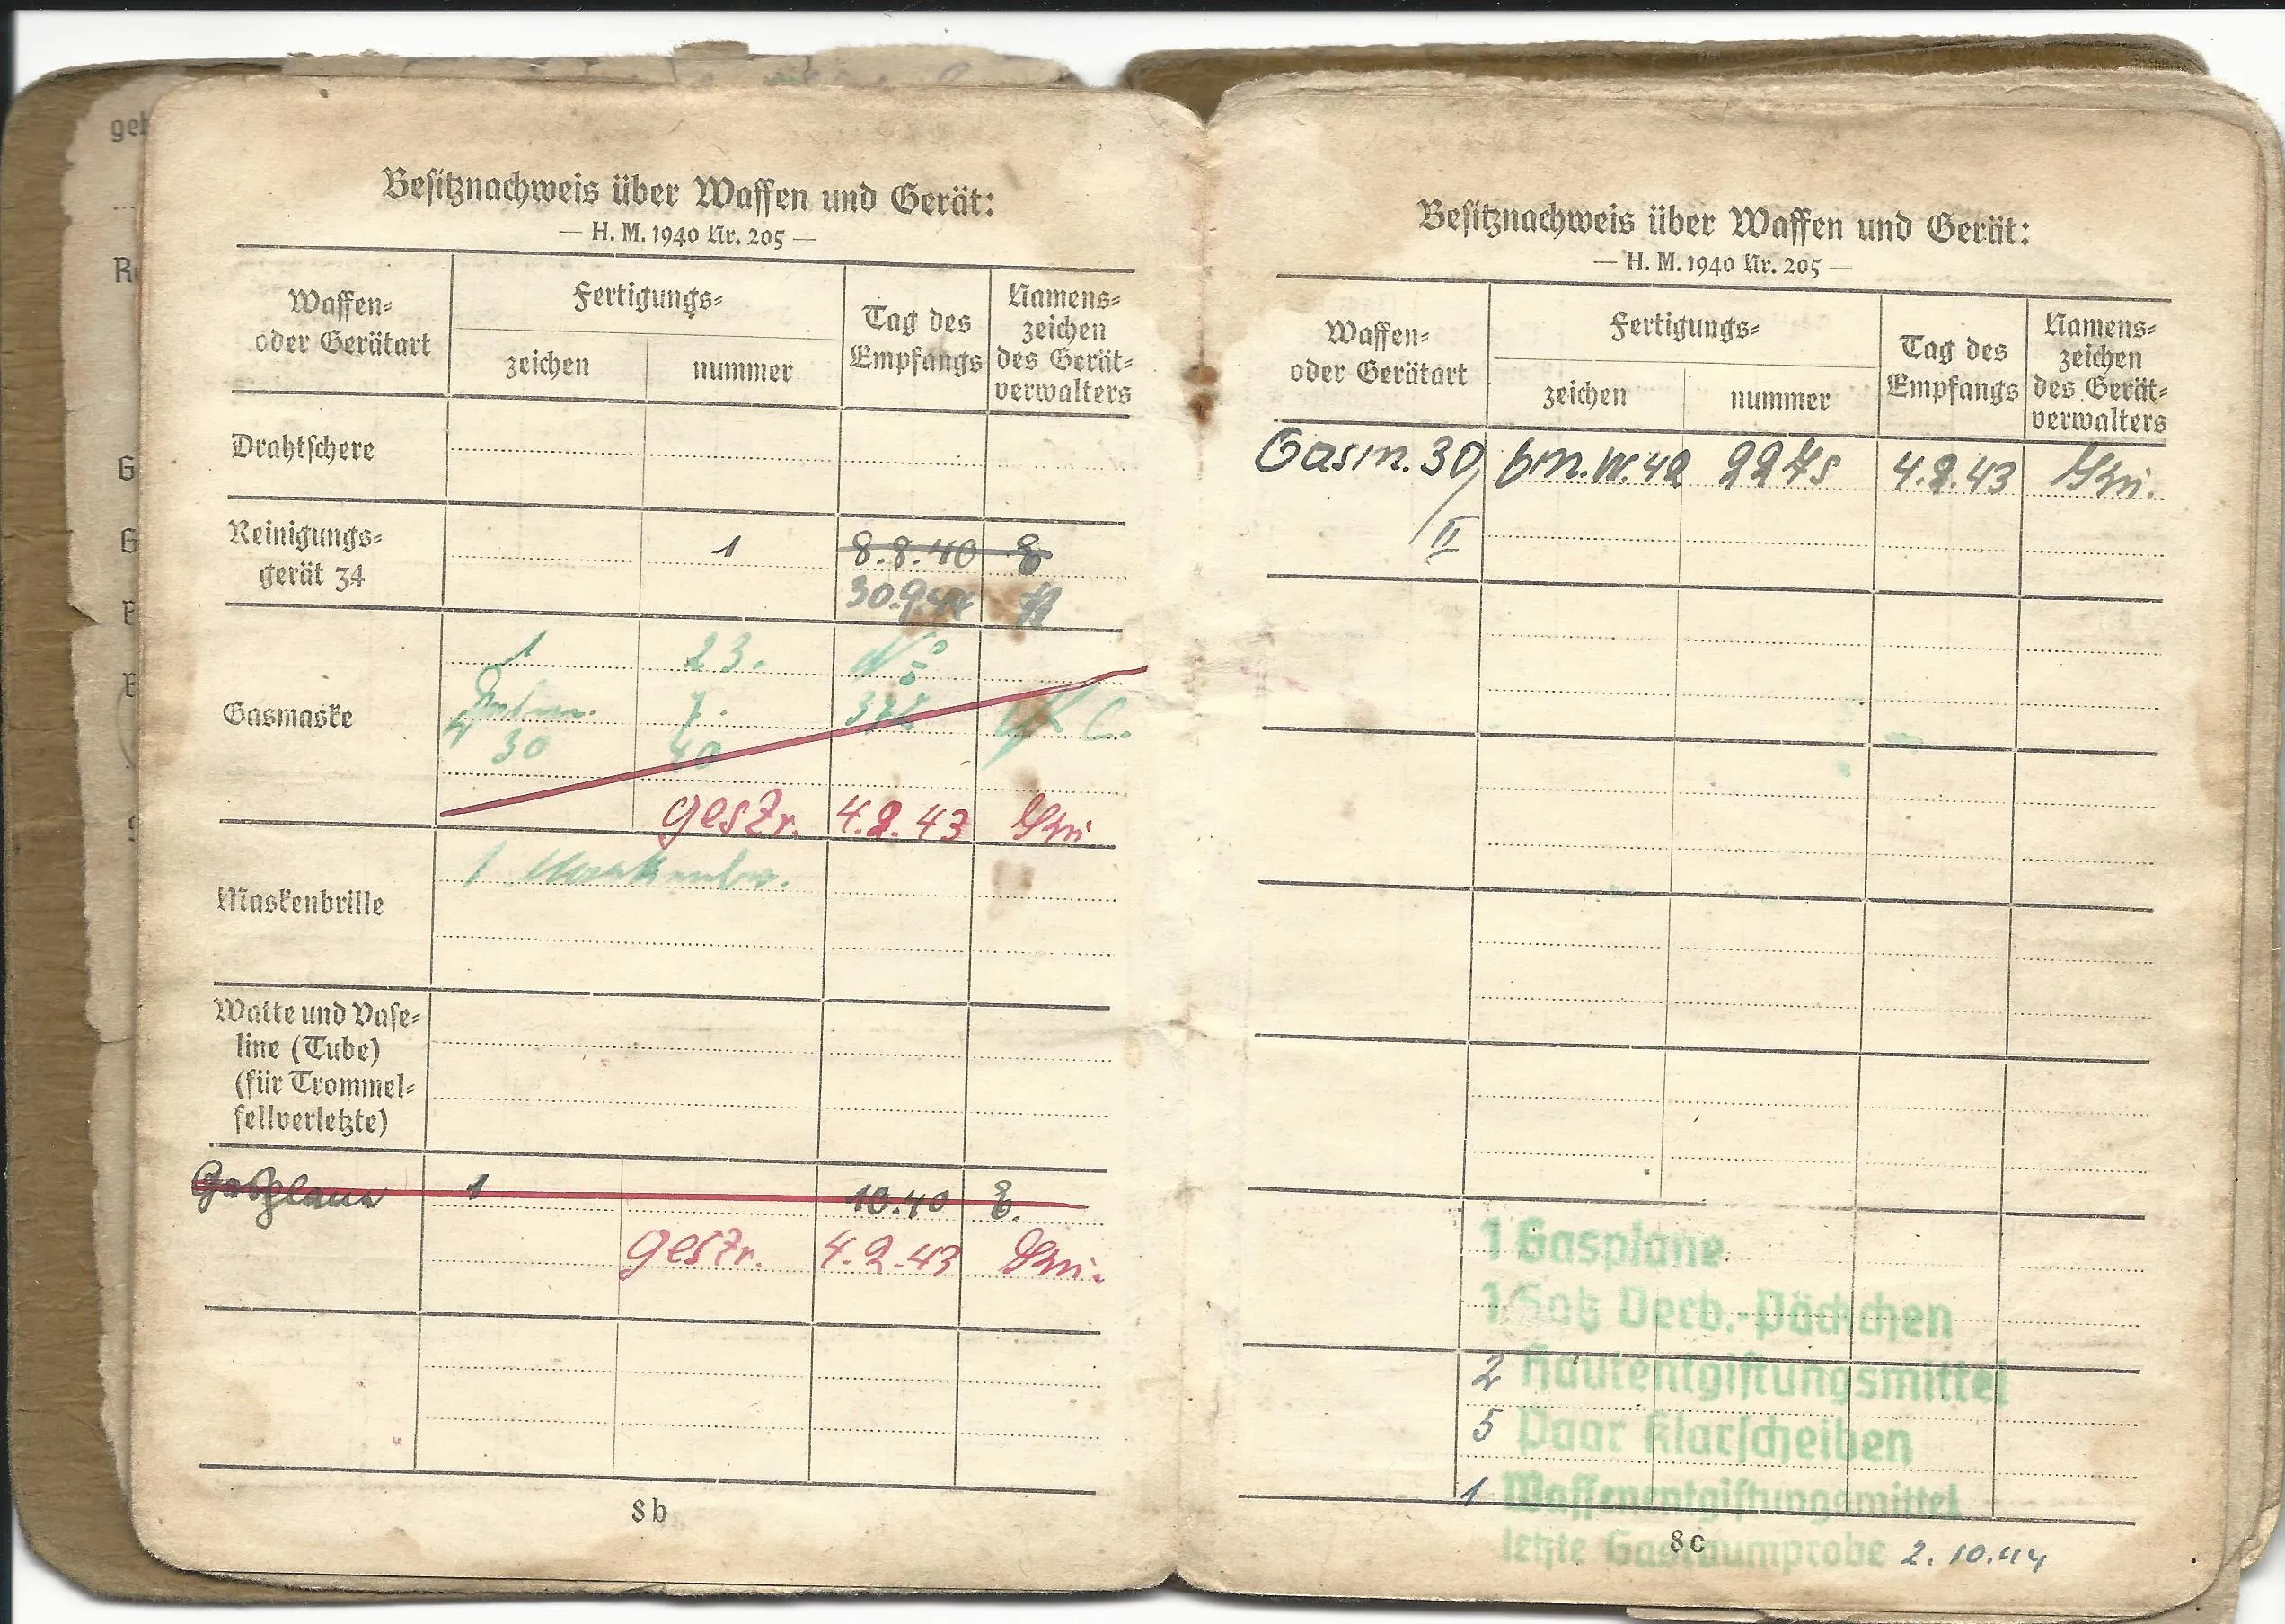 Besitznachweis über Waffen und Gerät:
— H. M. 1940 Nr. 205 —
Waffen-
oder Gerätart
Fertigungs-
zeichen
nummer
Tag des
Empfangs
Namens-
zeichen
des Gerät-
verwalters
Drahtschere
Reinigungs-
gerät 34
1
8.8.40
30.9.44
Gasmaske
1 23. N°
7. 372
30 40
gestr. 4.2.43
Maskenbrille
1
Watte und Vase-
line (Tube)
(für Trommel-
fellverletzte)
Gasplane 1 10.40
gestr. 4.2.43
8b
Besitznachweis über Waffen und Gerät:
— H. M. 1940 Nr. 205 —
Waffen-
oder Gerätart
Fertigungs-
zeichen
nummer
Tag des
Empfangs
Namens-
zeichen
des Gerät-
verwalters
Gasm. 30/ 4.2.43
II
1 Gasplane
1 Satz Verb.-Päckchen
2 Hautentgiftungsmittel
5 Paar Klarscheiben
1 Waffenentgiftungsmittel
8c
letzte Gasraumprobe 2.10.44
geh